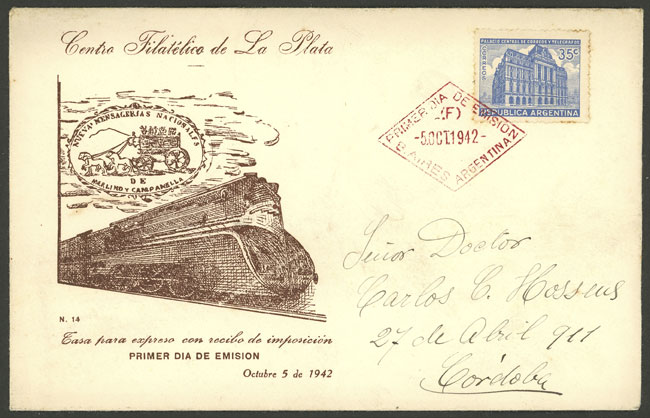 Centro Filatélico de La Plata
NUEVAS MENSAGERIAS NACIONALES
DE
MARLINO Y CAMPANELLA
N. 14
Tasa para expreso con recibo de imposición
PRIMER DIA DE EMISION
Octubre 5 de 1942
PALACIO CENTRAL DE CORREOS Y TELEGRAFOS
CORREOS
35c
REPUBLICA ARGENTINA
PRIMER DIA DE EMISION
(F)
-5OCT1942-
B. AIRES ARGENTINA
Señor Doctor
Carlos C. Hosseus
27 de Abril 911
Córdoba